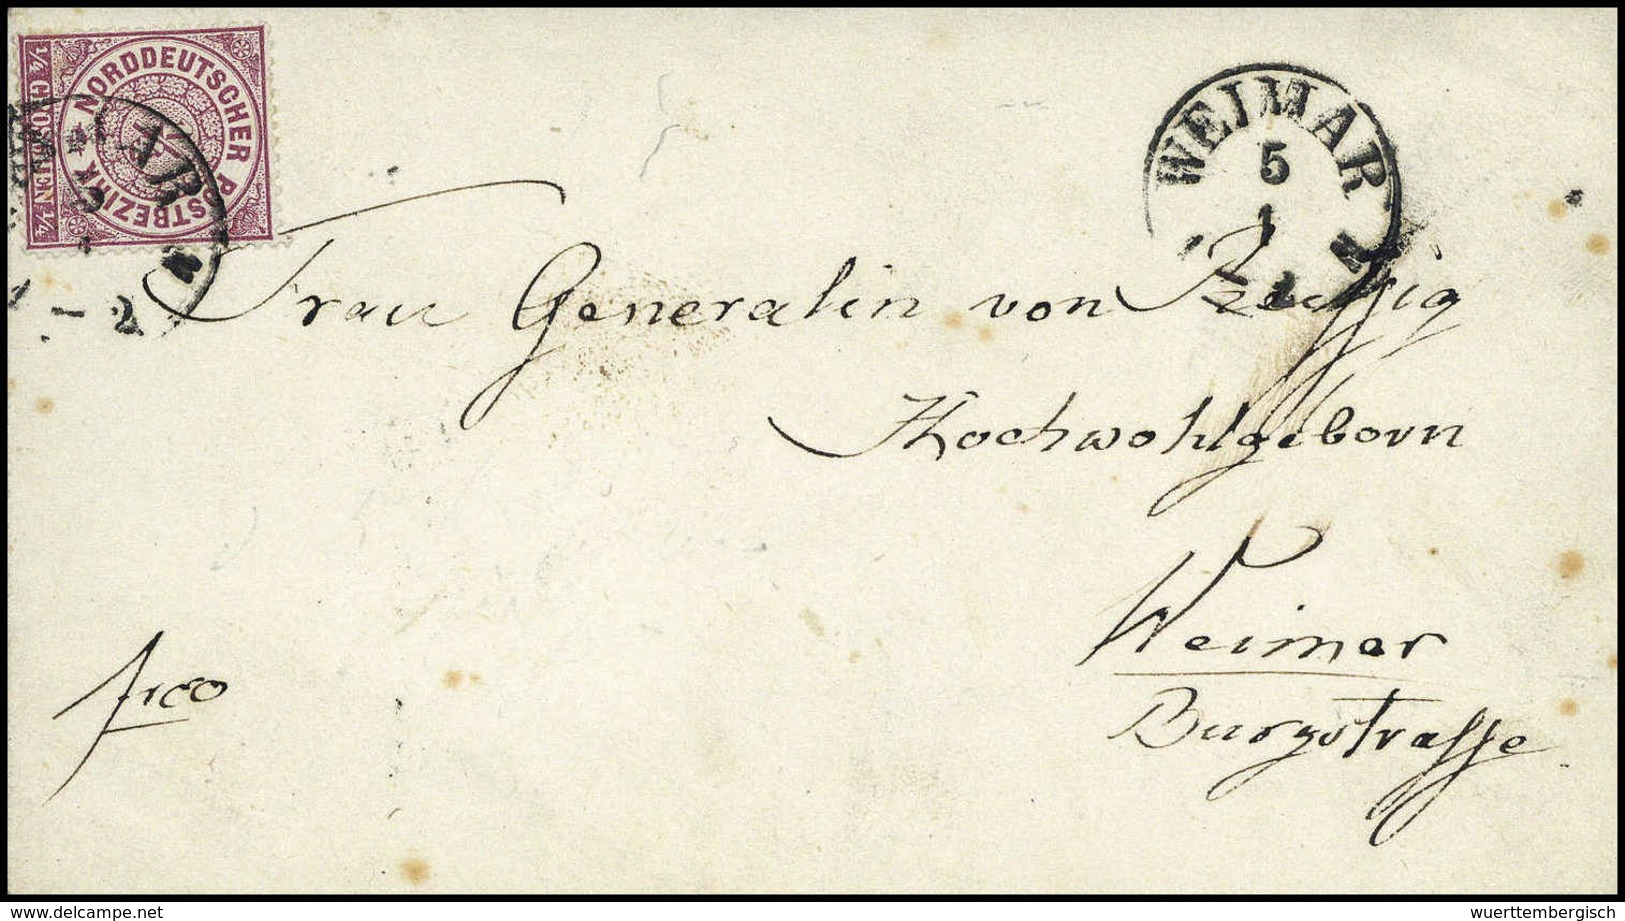 ¼ GROSCHEN ¼
NORDDEUTSCHER POSTBEZIRK
¼
WEIMAR
5
1
Frau Generalin von
Hochwohlgeborn
Weimar
Burgstraſse
frco
© delcampe.net
wuerttembergisch